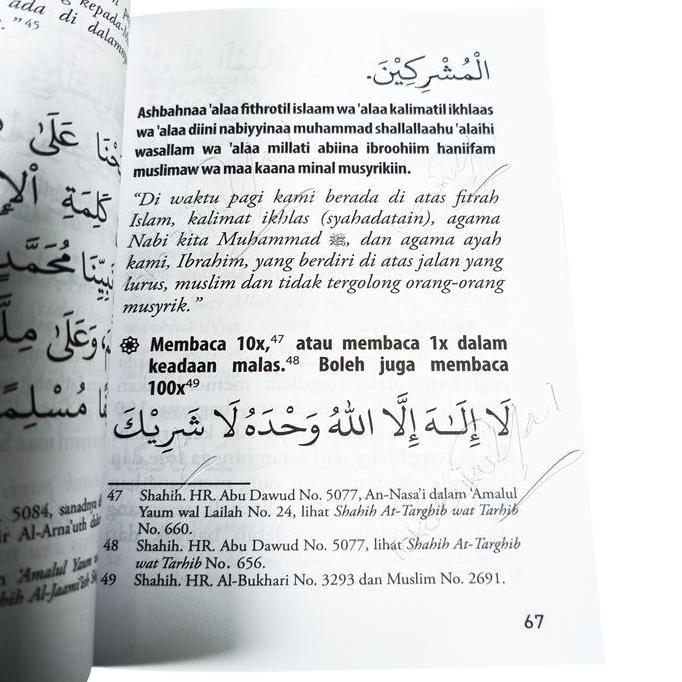 kepada-
ada di dalamnya
."45
عَلَىٰ
كَلِمَةِ
مُحَمَّدٍ
وَعَلَىٰ
مُسْلِمًا
5084, sanadnya
Al-Arna'uth
'Amalul Yaum
Al-Jaami'
الْمُشْرِكِيْنَ.
Ashbahnaa 'alaa fithrotil islaam wa 'alaa kalimatil ikhlaas
wa 'alaa diini nabiyyinaa muhammad shallallaahu 'alaihi
wasallam wa 'alaa millati abiina ibroohiim haniifam
muslimaw wa maa kaana minal musyrikiin.
"Di waktu pagi kami berada di atas fitrah
Islam, kalimat ikhlas (syahadatain), agama
Nabi kita Muhammad ﷺ, dan agama ayah
kami, Ibrahim, yang berdiri di atas jalan yang
lurus, muslim dan tidak tergolong orang-orang
musyrik."
Membaca 10x,47 atau membaca 1x dalam
keadaan malas.48 Boleh juga membaca
100x49
لَا إِلَـٰهَ إِلَّا اللهُ وَحْدَهُ لَا شَرِيْكَ
47 Shahih. HR. Abu Dawud No. 5077, An-Nasa'i dalam 'Amalul
Yaum wal Lailah No. 24, lihat Shahih At-Targhib wat Tarhib
No. 660.
48 Shahih. HR. Abu Dawud No. 5077, lihat Shahih At-Targhib
wat Tarhib No. 656.
49 Shahih. HR. Al-Bukhari No. 3293 dan Muslim No. 2691.
67